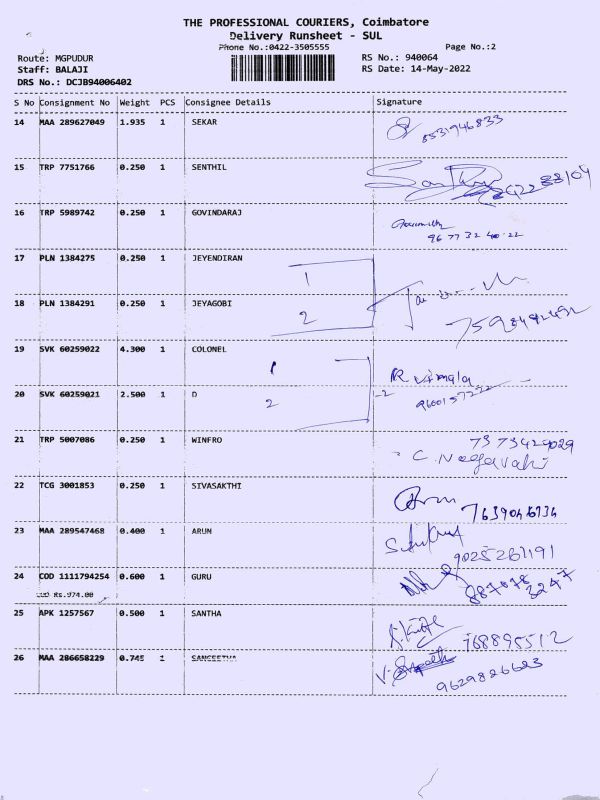 THE PROFESSIONAL COURIERS, Coimbatore
Delivery Runsheet - SUL
Phone No.:0422-3505555
Page No.:2
Route: MGPUDUR
RS No.: 940064
Staff: BALAJI
RS Date: 14-May-2022
DRS No.: DCJB94006402
S No Consignment No Weight PCS Consignee Details Signature
14 MAA 289627049 1.935 1 SEKAR
8531946833
15 TRP 7751766 0.250 1 SENTHIL
16 TRP 5989742 0.250 1 GOVINDARAJ
96 77 32 40 22
17 PLN 1384275 0.250 1 JEYENDIRAN
1
18 PLN 1384291 0.250 1 JEYAGOBI
2
7598492492
19 SVK 60259022 4.300 1 COLONEL
1
R Vimala
20 SVK 60259021 2.500 1 D
2
-2
21 TRP 5007086 0.250 1 WINFRO
7373429029
C. Nagavahi
22 TCG 3001853 0.250 1 SIVASAKTHI
7639046734
23 MAA 289547468 0.400 1 ARUN
9025261191
24 COD 1111794254 0.600 1 GURU
COD Rs.974.00
887878 3247
25 APK 1257567 0.500 1 SANTHA
768895512
26 MAA 286658229 0.745 1 SANGEETHA
9629826623